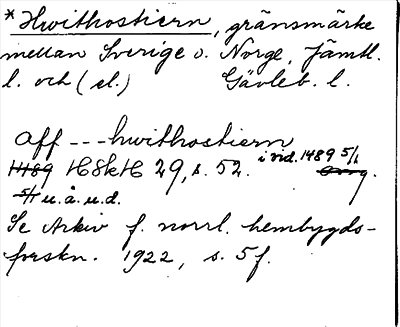 * Hwithostiern, gränsmärke
mellan Sverige o. Norge, Jämtl.
l. och (el.) Gävleb. l.
aff --- hwithostiern
1489 HSkH 29, s. 52. i vid. 1489 5/1
5/1 u. å. u. d.
Se Arkiv f. norrl. hembygds-
forskn. 1922, s. 5f.